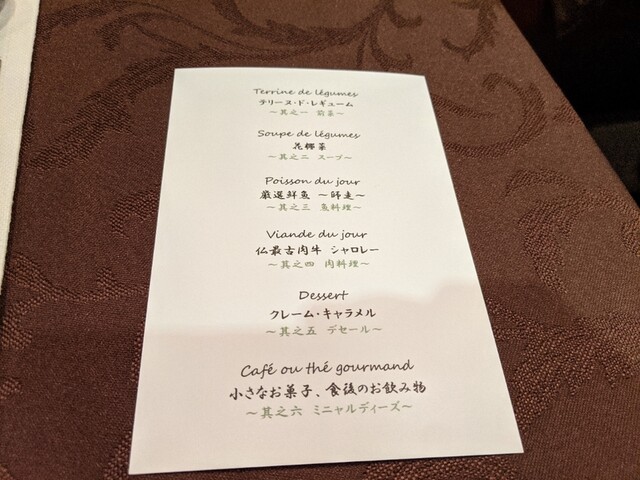 Terrine de légumes
テリーヌ・ド・レギューム
〜其之一 前菜〜
Soupe de légumes
花椰菜
〜其之二 スープ〜
Poisson du jour
厳選鮮魚 〜師走〜
〜其之三 魚料理〜
Viande du jour
仏最古肉牛 シャロレー
〜其之四 肉料理〜
Dessert
クレーム・キャラメル
〜其之五 デセール〜
Café ou thé gourmand
小さなお菓子、食後のお飲み物
〜其之六 ミニャルディーズ〜